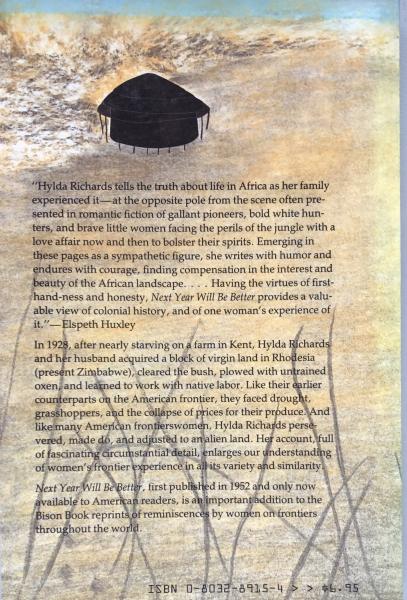 "Hylda Richards tells the truth about life in Africa as her family
experienced it—at the opposite pole from the scene often pre-
sented in romantic fiction of gallant pioneers, bold white hun-
ters, and brave little women facing the perils of the jungle with a
love affair now and then to bolster their spirits. Emerging in
these pages as a sympathetic figure, she writes with humor and
endures with courage, finding compensation in the interest and
beauty of the African landscape. . . . Having the virtues of first-
hand-ness and honesty, Next Year Will Be Better provides a valu-
able view of colonial history, and of one woman's experience of
it."—Elspeth Huxley
In 1928, after nearly starving on a farm in Kent, Hylda Richards
and her husband acquired a block of virgin land in Rhodesia
(present Zimbabwe), cleared the bush, plowed with untrained
oxen, and learned to work with native labor. Like their earlier
counterparts on the American frontier, they faced drought,
grasshoppers, and the collapse of prices for their produce. And
like many American frontierswomen, Hylda Richards perse-
vered, made do, and adjusted to an alien land. Her account, full
of fascinating circumstantial detail, enlarges our understanding
of women's frontier experience in all its variety and similarity.
Next Year Will Be Better, first published in 1952 and only now
available to American readers, is an important addition to the
Bison Book reprints of reminiscences by women on frontiers
throughout the world.
ISBN 0-8032-8915-4 > > $6.95